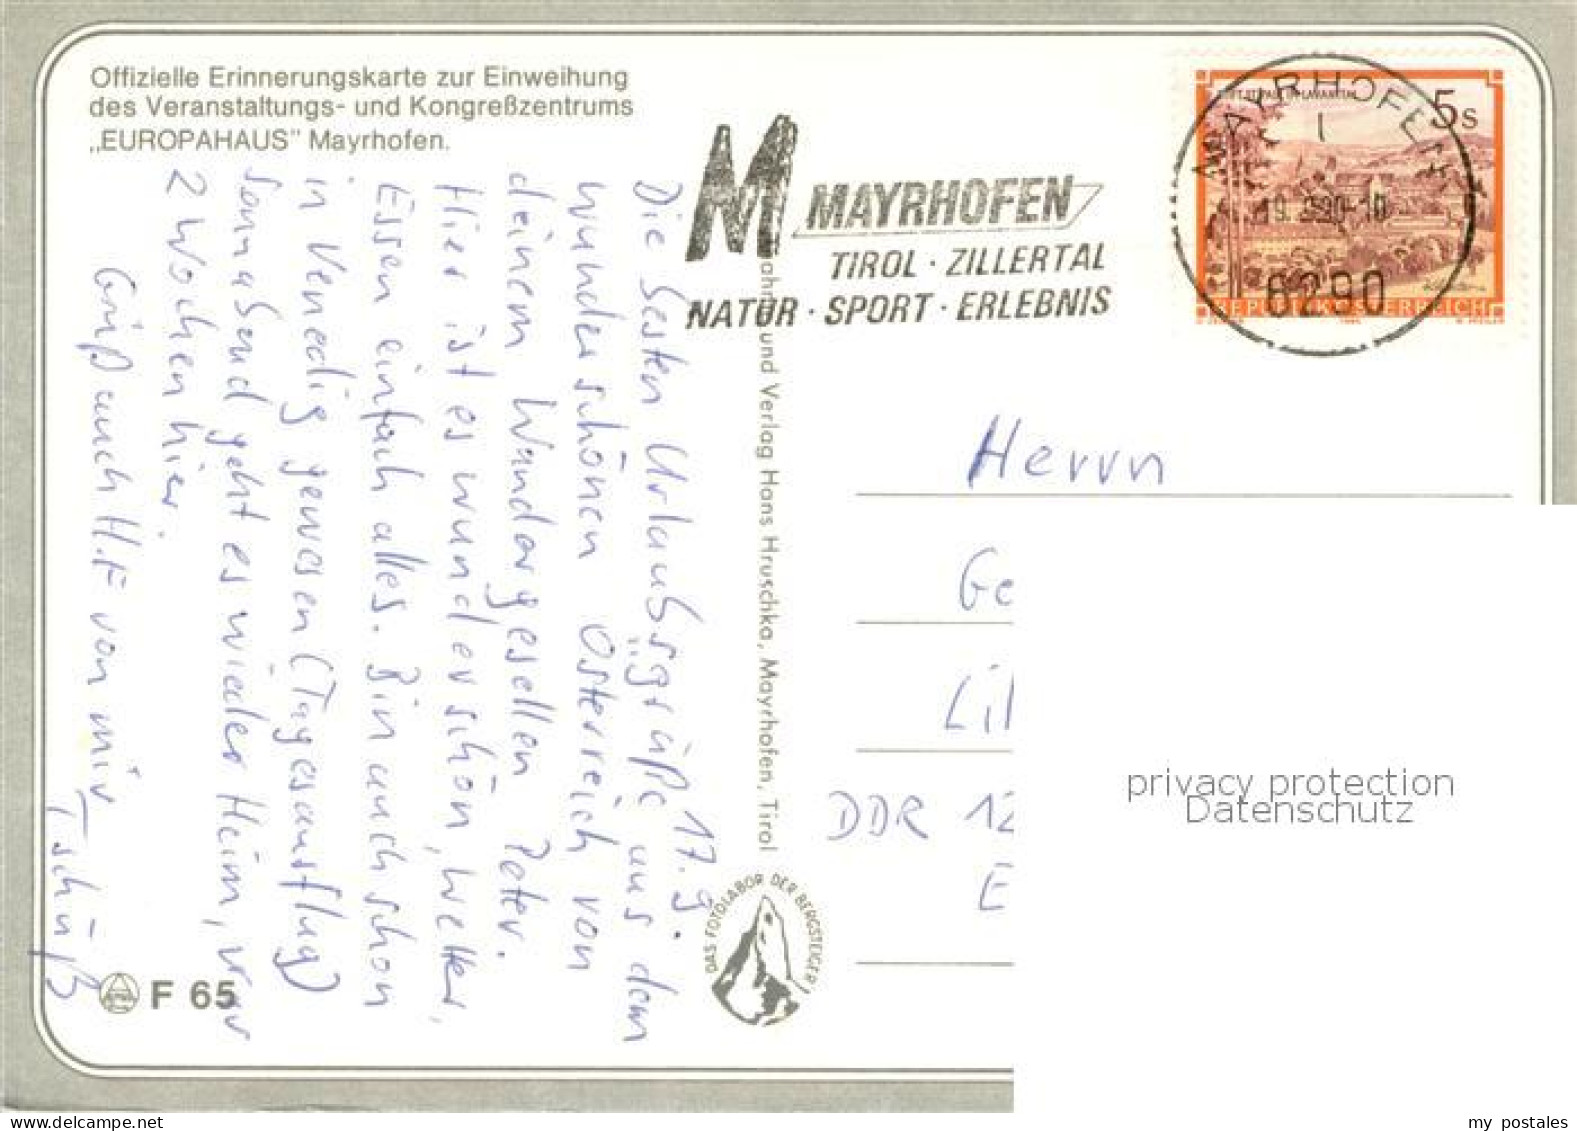 Offizielle Erinnerungskarte zur Einweihung
des Veranstaltungs- und Kongreßzentrums
„EUROPAHAUS" Mayrhofen.
17. 9.
Die besten Urlaubsgrüße aus dem
wunderschönen Österreich von
deinem Wandergesellen Peter.
Hier ist es wunderschön, Wetter,
Essen einfach alles. Bin auch schon
in Venedig gewesen (Tagesausflug)
Sonnabend geht es wieder Heim, war
2 Wochen hier.
Grüß auch H.F von mir
Tschüß
F 65
und Verlag Hans Hruschka, Mayrhofen, Tirol
DAS FOTOLABOR DER BERGSTEIGER
M MAYRHOFEN
TIROL · ZILLERTAL
NATUR · SPORT · ERLEBNIS
5 S
REPUBLIK ÖSTERREICH
MAYRHOFEN
19. 9.90-10
6290
Herrn
Ge
Lil
DDR 12
E
privacy protection
Datenschutz
www.delcampe.net
my_postales